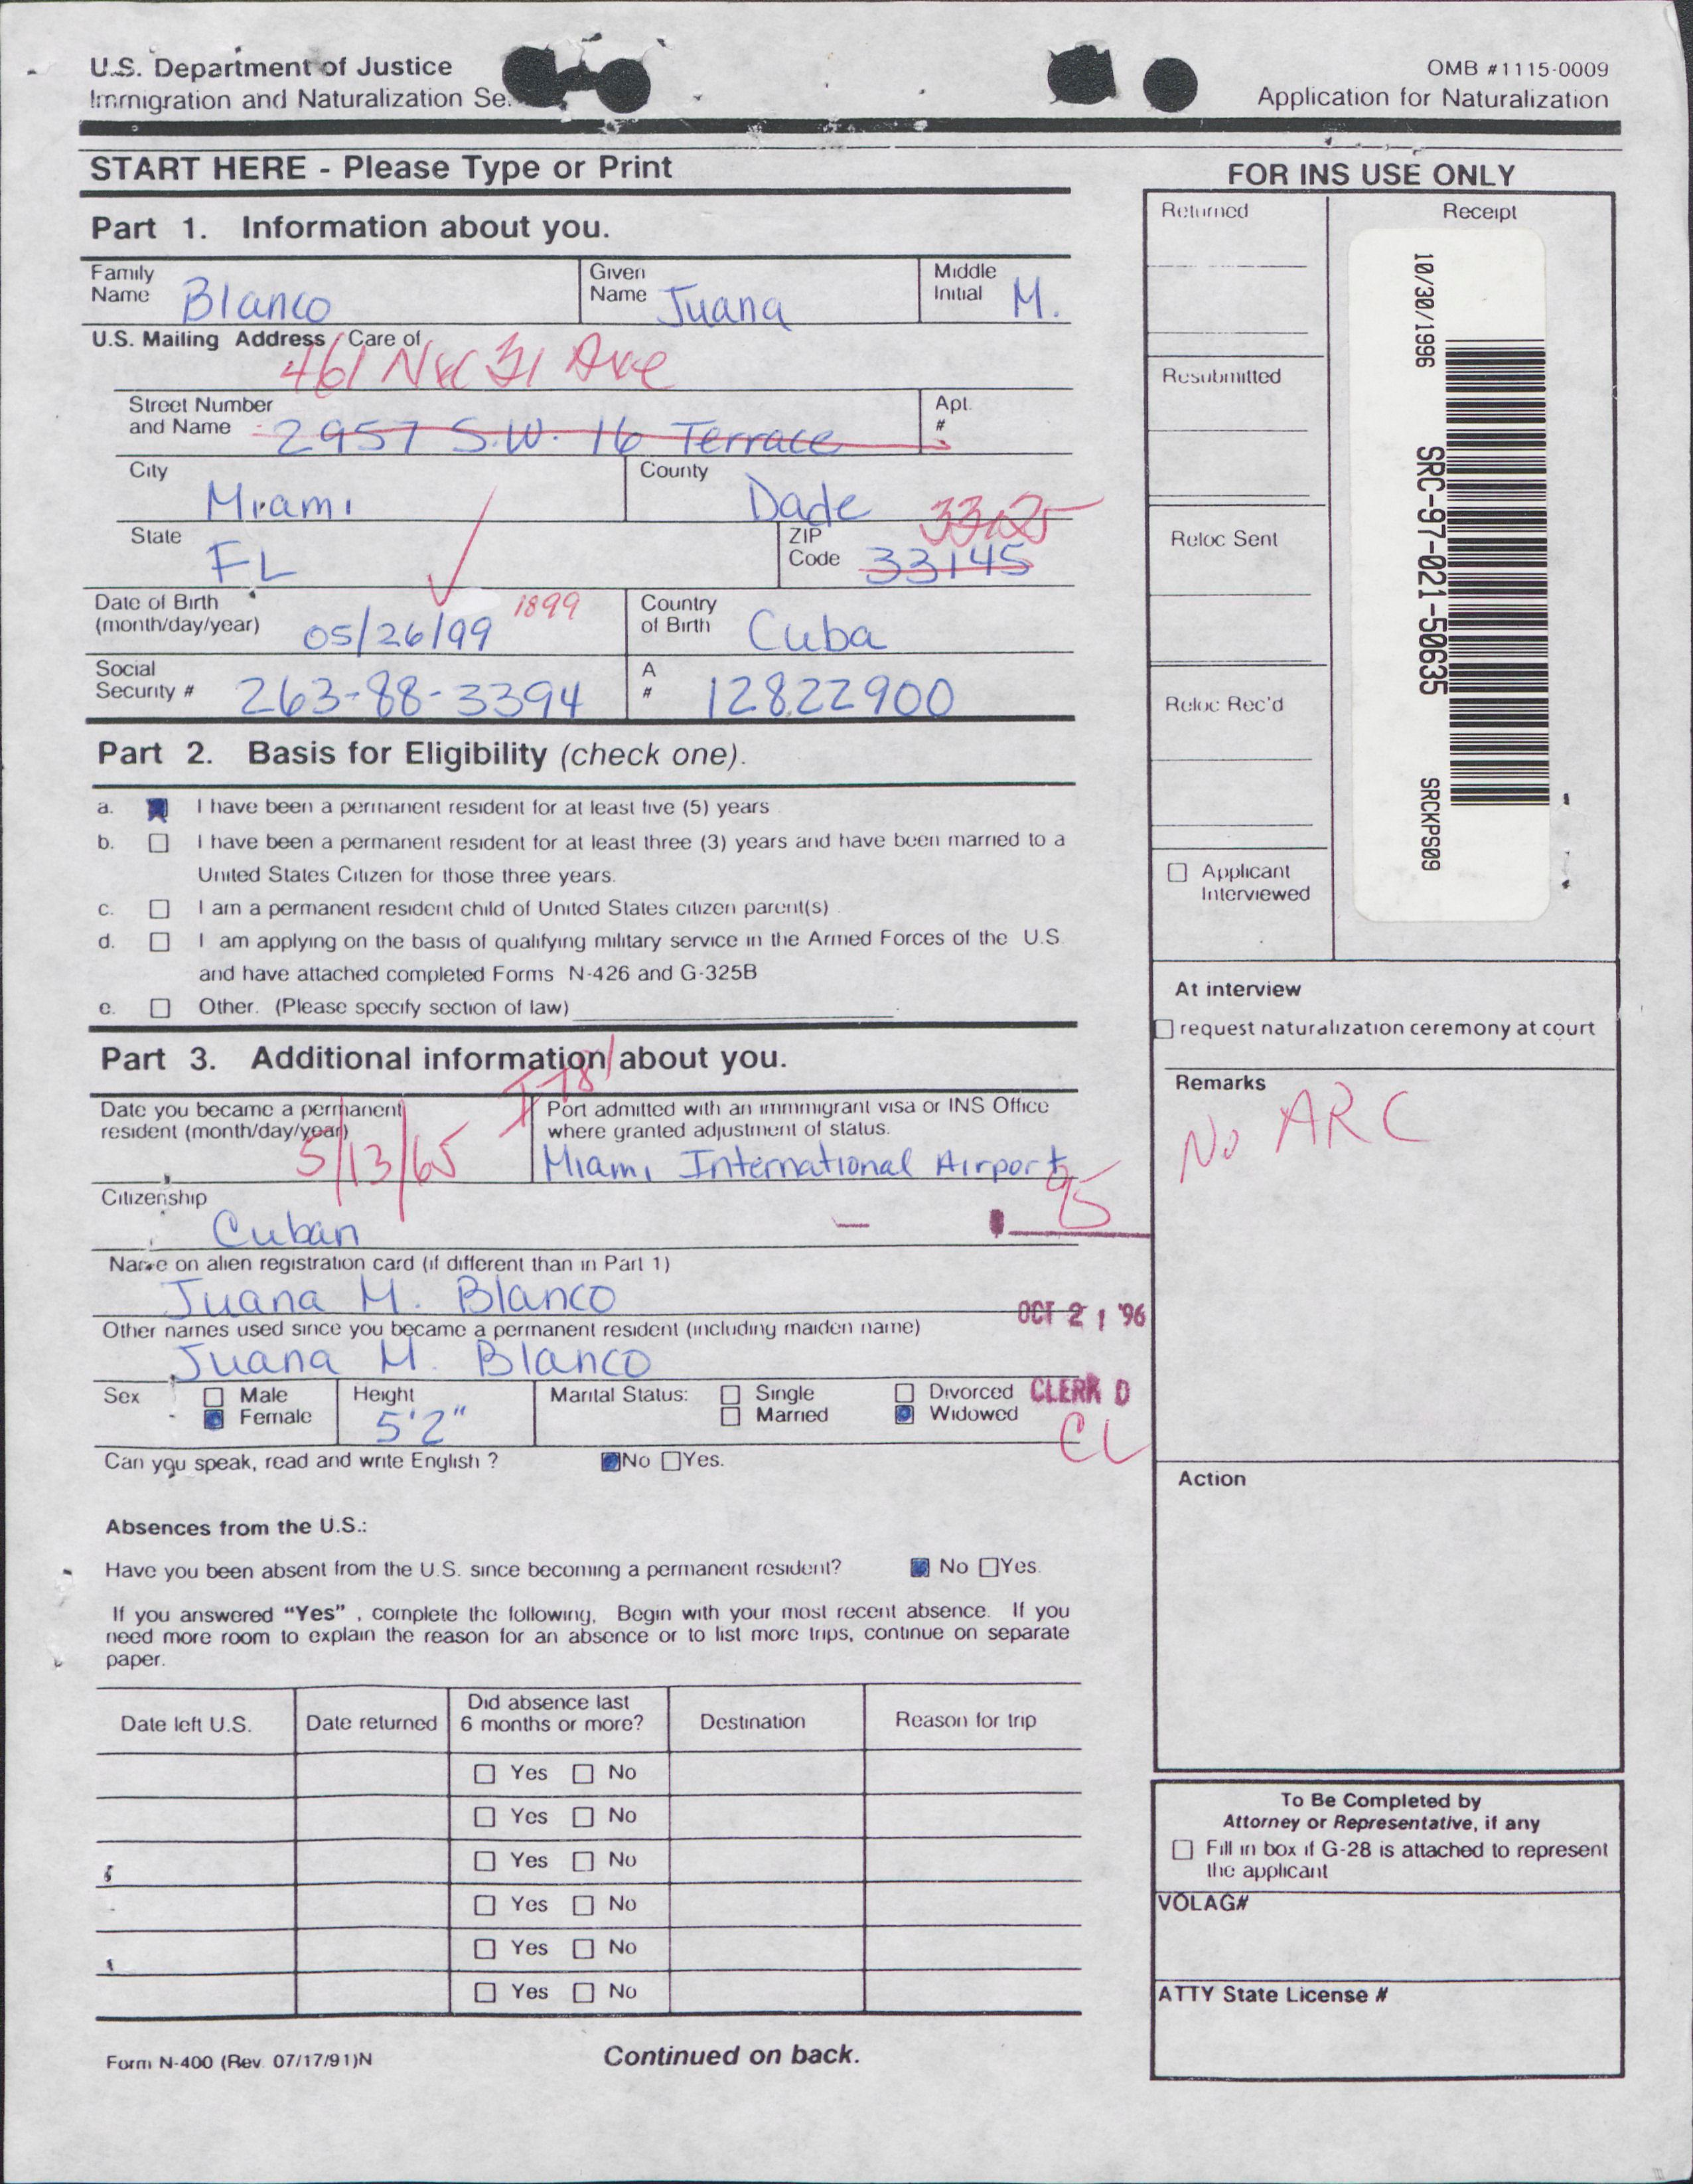 U.S. Department of Justice
Immigration and Naturalization Se
OMB #1115-0009
Application for Naturalization
START HERE - Please Type or Print
Part 1. Information about you.
Family Name Blanco
Given Name Juana
Middle Initial M.
U.S. Mailing Address Care of
461 NW 31 Ave
Street Number and Name 2957 S.W. 16 Terrace
Apt. #
City Miami
County Dade
State FL
ZIP Code 33145 33125
Date of Birth (month/day/year) 05/26/99 1899
Country of Birth Cuba
Social Security # 263-88-3394
A # 12822900
Part 2. Basis for Eligibility (check one).
a. I have been a permanent resident for at least five (5) years
b. I have been a permanent resident for at least three (3) years and have been married to a
United States Citizen for those three years.
c. I am a permanent resident child of United States citizen parent(s)
d. I am applying on the basis of qualifying military service in the Armed Forces of the U.S.
and have attached completed Forms N-426 and G-325B
e. Other. (Please specify section of law)
Part 3. Additional information about you.
Date you became a permanent
resident (month/day/year)
5/13/65
Port admitted with an immmigrant visa or INS Office
where granted adjustment of status.
Miami International Airport
95
Citizenship
Cuban
Name on alien registration card (if different than in Part 1)
Juana M. Blanco
OCT 21 '96
Other names used since you became a permanent resident (including maiden name)
Juana M. Blanco
Sex Male Female
Height 5'2"
Marital Status: Single Married Divorced Widowed
CLERK D
CL
Can you speak, read and write English ? No Yes.
Absences from the U.S.:
Have you been absent from the U.S. since becoming a permanent resident? No Yes.
If you answered “Yes” , complete the following, Begin with your most recent absence. If you
need more room to explain the reason for an absence or to list more trips, continue on separate
paper.
Date left U.S. Date returned Did absence last 6 months or more? Destination Reason for trip
Yes No
Yes No
Yes No
Yes No
Yes No
Yes No
Form N-400 (Rev. 07/17/91)N
Continued on back.
FOR INS USE ONLY
Returned
Receipt
10/30/1996
SRC-97-021-50635
SRCKPS09
Resubmitted
Reloc Sent
Reloc Rec'd
Applicant
Interviewed
At interview
request naturalization ceremony at court
Remarks
No ARC
Action
To Be Completed by
Attorney or Representative, if any
Fill in box if G-28 is attached to represent
the applicant
VOLAG#
ATTY State License #